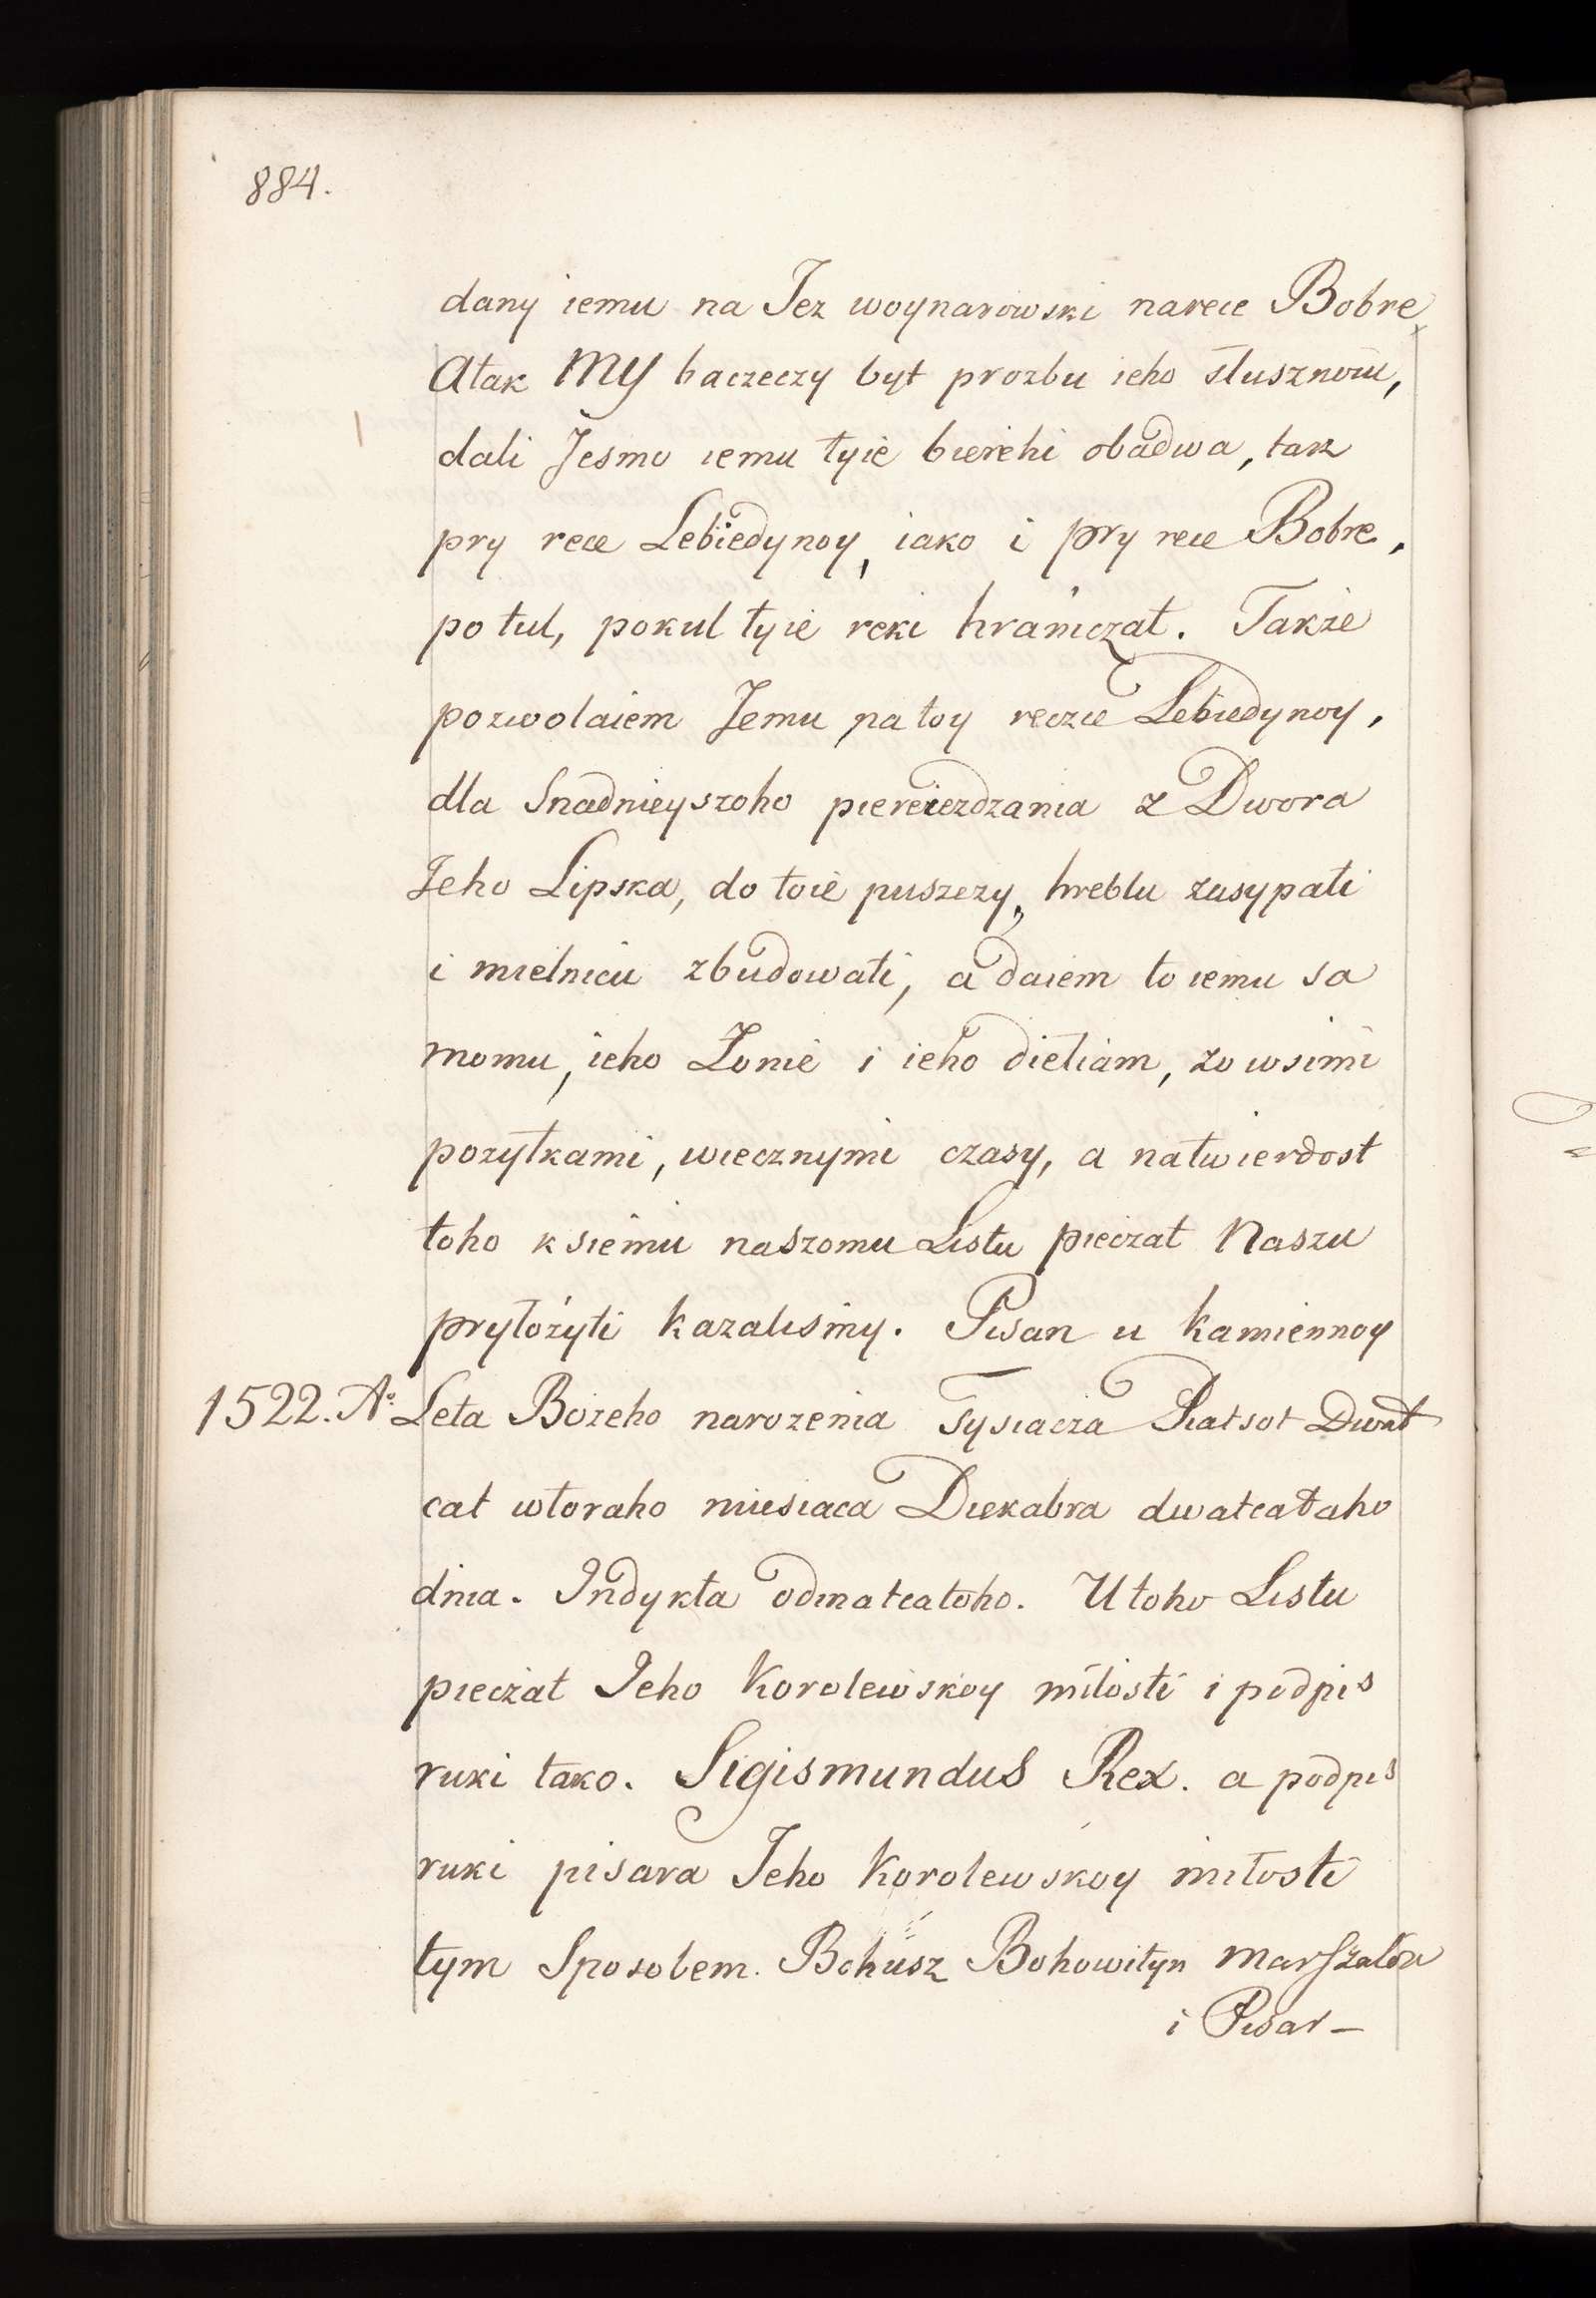 884.
dany iemu na Jez woynarowski narece Bobre,
Atak MY baczeczy byt prozbu ieho słusznoiu,
dali Jesmo iemu tyie bierehi obadwa, tak
pry rece Lebiedynoy, iako i pry rece Bobre,
potul, pokul tyie reki hraniczat. Takze
pozwolaiem Jemu na toy reczie Lebiedynoy,
dla Snadnieyszoho piereiezdzania z Dwora
Jeho Lipska, do toie puszczy, hreblu zasypati
i mielnicu zbudowati, a daiem to iemu sa
momu, ieho Żonie i ieho dietiam, zo wsimi
pozytkami, wiecznymi czasy, a natwierdost
toho ksiemu naszomu Listu pieczat Naszu
pryłożyti kazalismy. Pisan u Kamiennoy
1522. Aº Leta Bozeho narozenia Tysiacza Piatsot Dwat
cat wtoraho miesiaca Diekabra dwatcataho
dnia. Indykta odinatcatoho. U toho Listu
pieczat Jeho Korolewskoy miłosti i podpis
ruki tako. Sigismundus Rex. a podpis
ruki pisara Jeho Korolewskoy miłosti
tym Sposobem. Bohusz Bohowityn Marszałok
i Pisar –